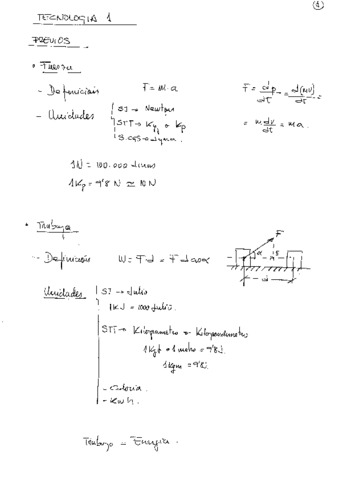 1
TECNOLOGIA 1
PREVIOS
• Fuerza
- Definición F = m·a F = dp/dt = d(mv)/dt =
- Unidades SI → Newton = m dv/dt = ma.
STT → Kgf o Kp
S. CGS → dyna.
1N = 100.000 dinas
1Kp = 9'8 N ≃ 10N
• Trabajo
- Definición W = F d = F d cosα
F
α
d
Unidades SI → Julio
1KJ = 1000 Julios.
STT → Kilogrametro o Kilopondimetro
1Kgf · 1 metro = 9'8J.
1Kgm = 9'8J.
- Caloria.
- Kwh.
Trabajo = Energia.